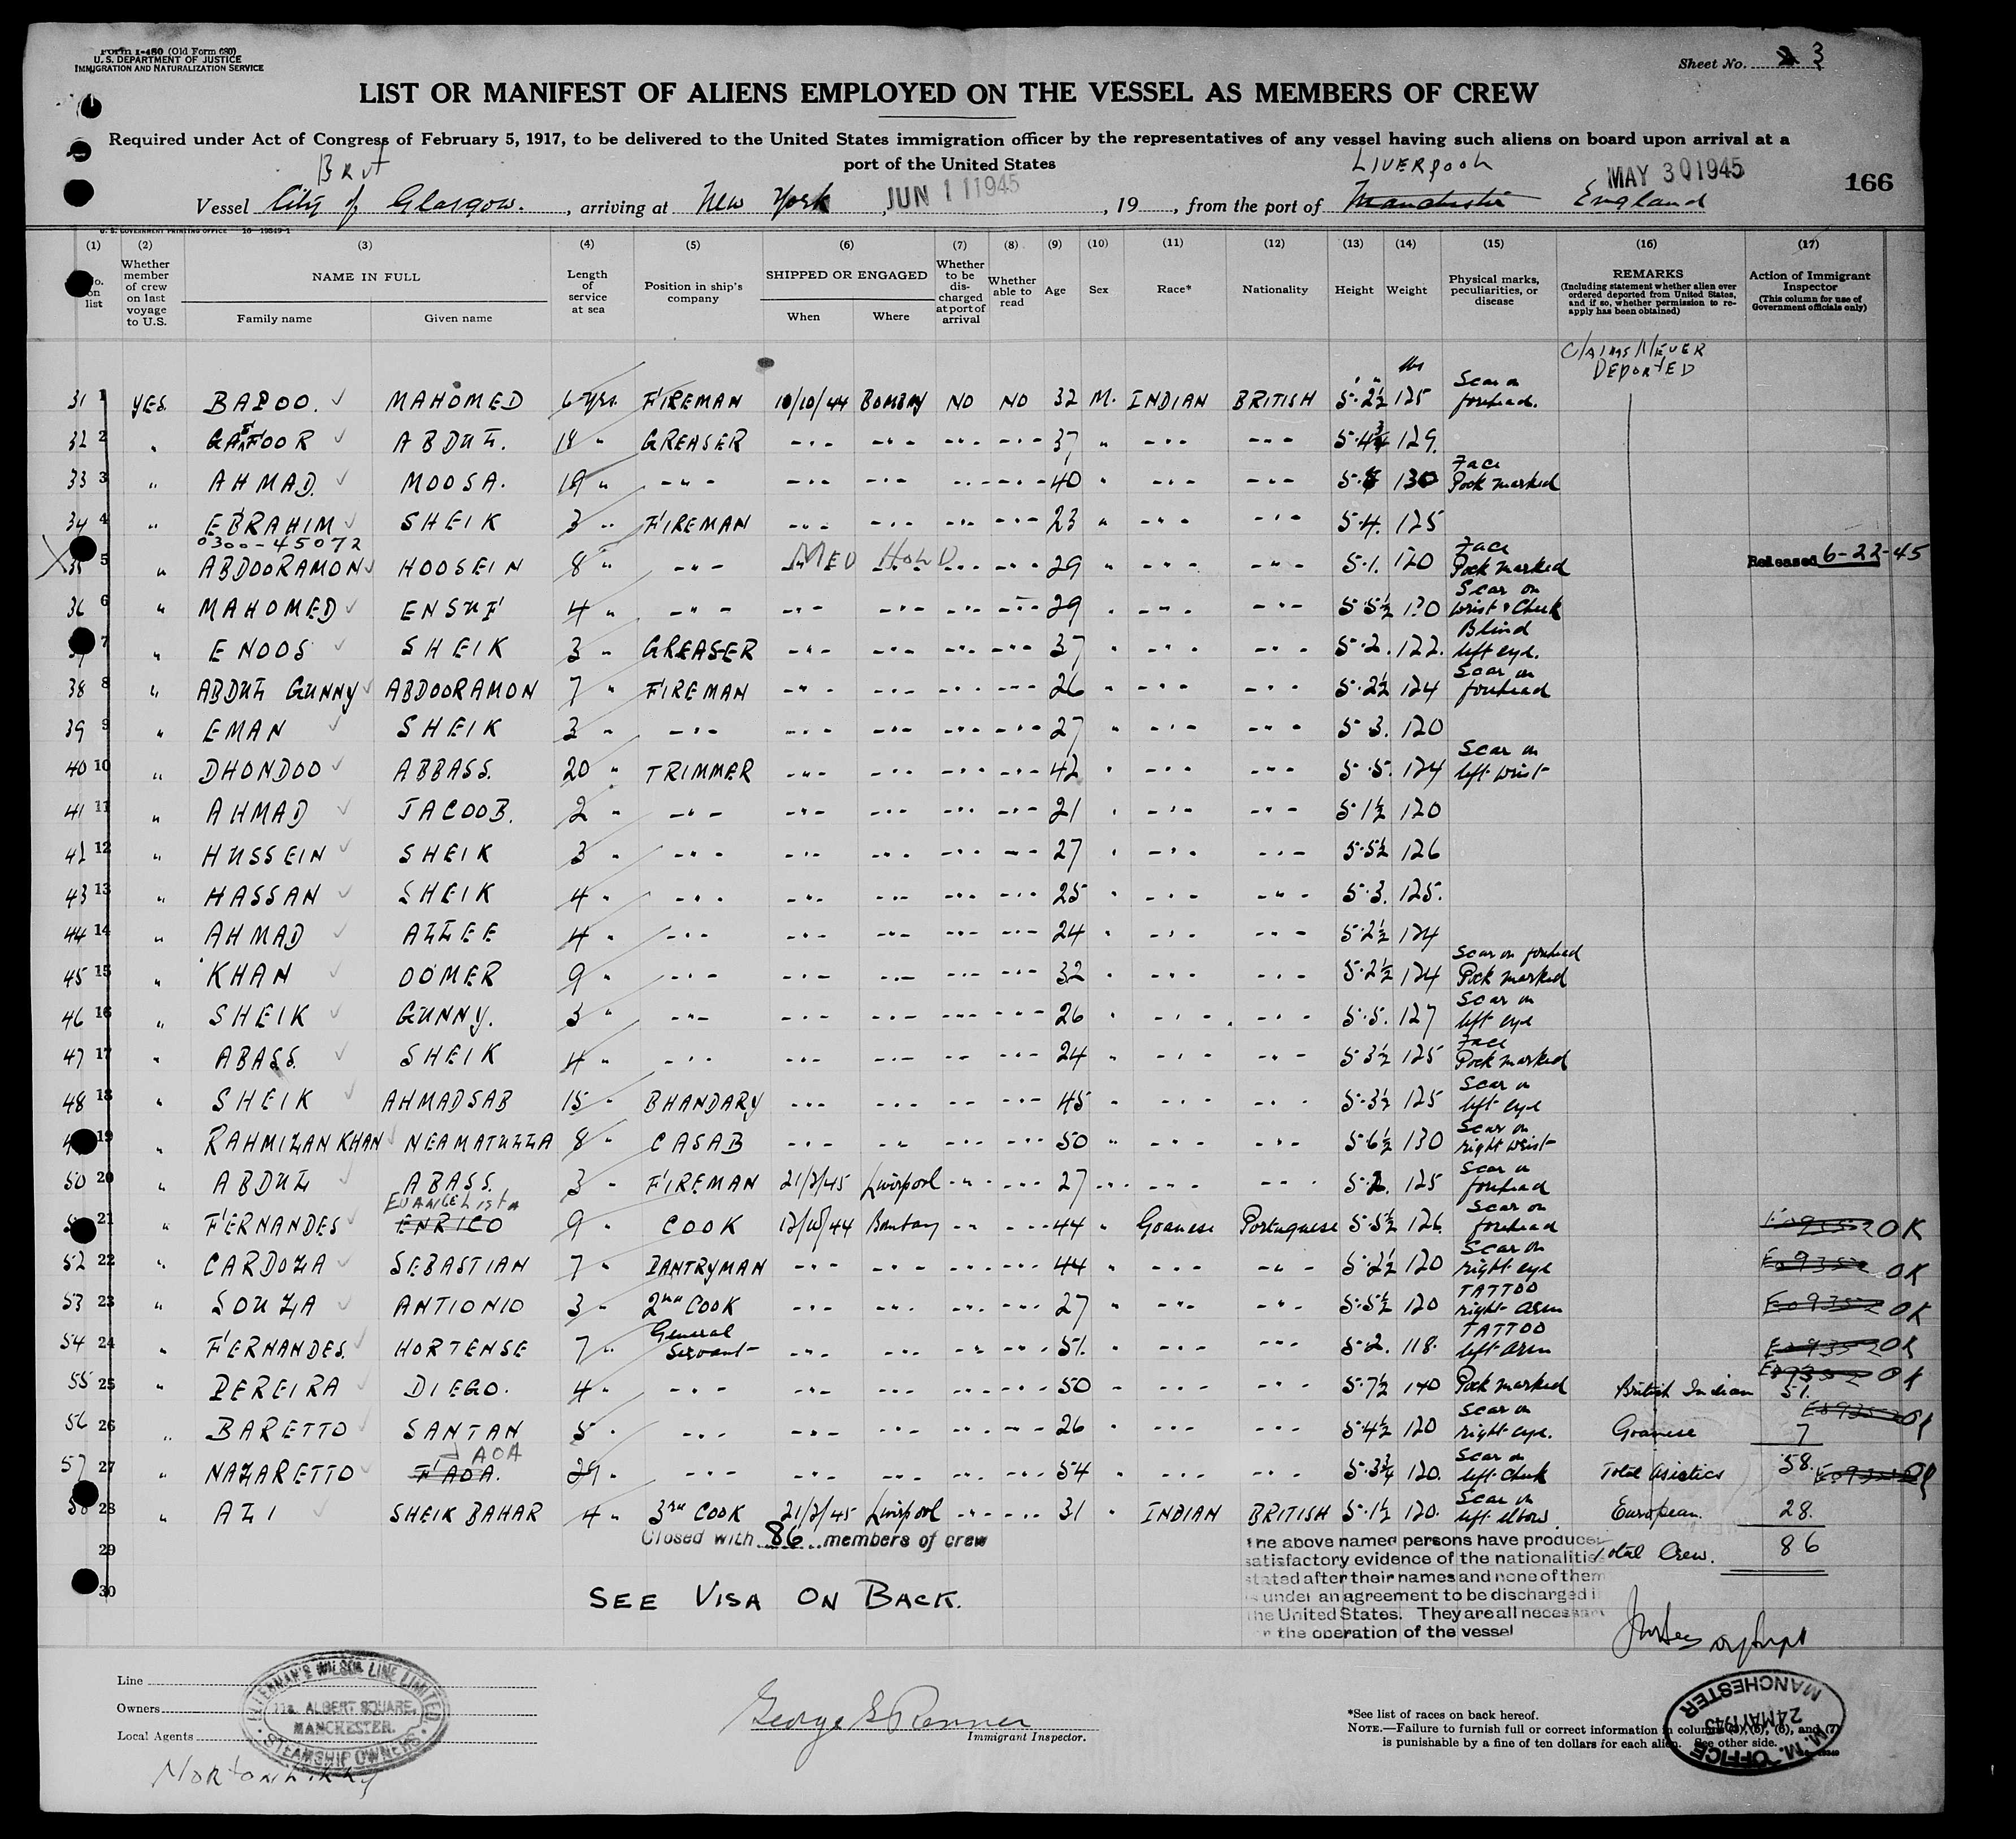 Form I-480 (Old Form 680)
U. S. DEPARTMENT OF JUSTICE
IMMIGRATION AND NATURALIZATION SERVICE
Sheet No. 3
LIST OR MANIFEST OF ALIENS EMPLOYED ON THE VESSEL AS MEMBERS OF CREW
Required under Act of Congress of February 5, 1917, to be delivered to the United States immigration officer by the representatives of any vessel having such aliens on board upon arrival at a
port of the United States
Brit
LIVERPOOL
Vessel City of Glasgow. , arriving at New York , JUN 11 1945 , 19 , from the port of Manchester England MAY 30 1945
166
U. S. GOVERNMENT PRINTING OFFICE 16-19549-1
(1) (2) (3) (4) (5) (6) (7) (8) (9) (10) (11) (12) (13) (14) (15) (16) (17)
No. on list Whether member of crew on last voyage to U.S. NAME IN FULL Family name Given name Length of service at sea Position in ship's company SHIPPED OR ENGAGED When Where Whether to be discharged at port of arrival Whether able to read Age Sex Race* Nationality Height Weight Physical marks, peculiarities, or disease REMARKS (Including statement whether alien ever ordered deported from United States, and if so, whether permission to reapply has been obtained) Action of Immigrant Inspector (This column for use of Government officials only)
Claims Never Deported
lbs
31 1 YES. BAPOO. MAHOMED 6 yrs. FIREMAN 10/10/44 BOMBAY NO NO 32 M. INDIAN BRITISH 5·2½ 125 Scar on forehead.
32 2 " GAFOOR ABDUL. 18 " GREASER -"- -"- -"- -"- 37 " -"- -"- 5·4¾ 129.
33 3 " AHMAD. MOOSA. 19 " -"- -"- -"- -"- -"- 40 " -"- -"- 130 Face Pock marked
34 4 " EBRAHIM SHEIK 3 " FIREMAN -"- -"- -"- -"- 23 " -"- -"- 5·4. 125
0300-45072
35 5 " ABDOORAMON HOOSEIN 8 " -"- MED HOLD -"- -"- 29 " -"- -"- 5·1. 120 Face Pock marked Released 6-22-45
36 6 " MAHOMED ENSUF 4 " -"- -"- -"- -"- -"- 29 " -"- -"- 5·5½ 130 Scar on wrist & Cheek
7 " ENOOS SHEIK 3 " GREASER -"- -"- -"- -"- 37 " -"- -"- 5·2. 122. Blind left eye.
38 8 " ABDUL GUNNY ABDOORAMON 7 " FIREMAN -"- -"- -"- -"- 26 " -"- -"- 5·2½ 124 Scar on forehead
39 9 " EMAN SHEIK 3 " -"- -"- -"- -"- -"- 27 " -"- -"- 5·3. 120
40 10 " DHONDOO ABBASS. 20 " TRIMMER -"- -"- -"- -"- 42 " -"- -"- 5·5. 124 Scar on left wrist
41 11 " AHMAD JACOOB. 2 " -"- -"- -"- -"- -"- 21 " -"- -"- 5·1½ 120
42 12 " HUSSEIN SHEIK 3 " -"- -"- -"- -"- -"- 27 " -"- -"- 5·5½ 126
43 13 " HASSAN SHEIK 4 " -"- -"- -"- -"- -"- 25 " -"- -"- 5·3. 125.
44 14 " AHMAD ALLEE 4 " -"- -"- -"- -"- -"- 24 " -"- -"- 5·2½ 124
45 15 " KHAN OOMER 9 " -"- -"- -"- -"- -"- 32 " -"- -"- 5·2½ 124 Scar on forehead Pock marked
46 16 " SHEIK GUNNY. 3 " -"- -"- -"- -"- -"- 26 " -"- -"- 5·5. 127 Scar on left eye
47 17 " ABASS. SHEIK 4 " -"- -"- -"- -"- -"- 24 " -"- -"- 5·3½ 125 Face Pock marked
48 18 " SHEIK AHMADSAB 15 " BHANDARY -"- -"- -"- -"- 45 " -"- -"- 5·3½ 125 Scar on left eye
19 " RAHMILAN KHAN NEAMATULLA 8 " CASAB -"- -"- -"- -"- 50 " -"- -"- 5·6½ 130 Scar on right wrist
50 20 " ABDUL ABASS. 3 " FIREMAN 21/3/45 Liverpool -"- -"- 27 -"- -"- -"- 5·2. 125 Scar on forehead
EVANGELISTA
21 " FERNANDES ENRICO 9 " COOK 12/10/44 Bombay -"- -"- 44 " Goanese Portuguese 5·5½ 126. Scar on forehead OK
52 22 " CARDOZA SEBASTIAN 7 " PANTRYMAN -"- -"- -"- -"- 44 " -"- -"- 5·2½ 120 Scar on right eye E09352 OK
53 23 " SOUZA ANTIONIO 3 " 2nd COOK -"- -"- -"- -"- 27 " -"- -"- 5·5½ 120 TATTOO right arm E09352 OK
54 24 " FERNANDES. HORTENSE 7 " General Servant -"- -"- -"- -"- 51. " -"- -"- 5·2. 118. TATTOO left arm E09352 OK
55 25 " PEREIRA DIEGO. 4 " -"- -"- -"- -"- -"- 50 " -"- -"- 5·7½ 140 Pock marked British Indian 51. E09352 OK
56 26 " BARETTO SANTAN 5 " -"- -"- -"- -"- -"- 26 " -"- -"- 5·4½ 120 Scar on right eye. Goanese 7 E09352 OK
JAOA
57 27 " NAZARETTO FAOA. 29 " -"- -"- -"- -"- -"- 54 " -"- -"- 5·3¾ 120. Scar on left Cheek Total Asiatics 58. E09352 OK
58 28 " ALI SHEIK BAHAR 4 " 3rd COOK 21/3/45 Liverpool -"- -"- 31 " INDIAN BRITISH 5·1½ 120. Scar on left elbow. European. 28.
Closed with 86 members of crew
29 Total Crew. 86
30
SEE VISA ON BACK.
The above named persons have produced
satisfactory evidence of the nationalities
stated after their names and none of them
is under an agreement to be discharged in
the United States. They are all necessary
in the operation of the vessel
Line
Owners
Local Agents
ELLERMAN'S WILSON LINE LIMITED
11a, ALBERT SQUARE,
MANCHESTER.
STEAMSHIP OWNERS
Norton Lilly
George S Renner
Immigrant Inspector.
*See list of races on back hereof.
NOTE.—Failure to furnish full or correct information in columns (3), (5), (6), and (7)
is punishable by a fine of ten dollars for each alien. See other side.
M. M. OFFICE
24 MAY 1945
MANCHESTER